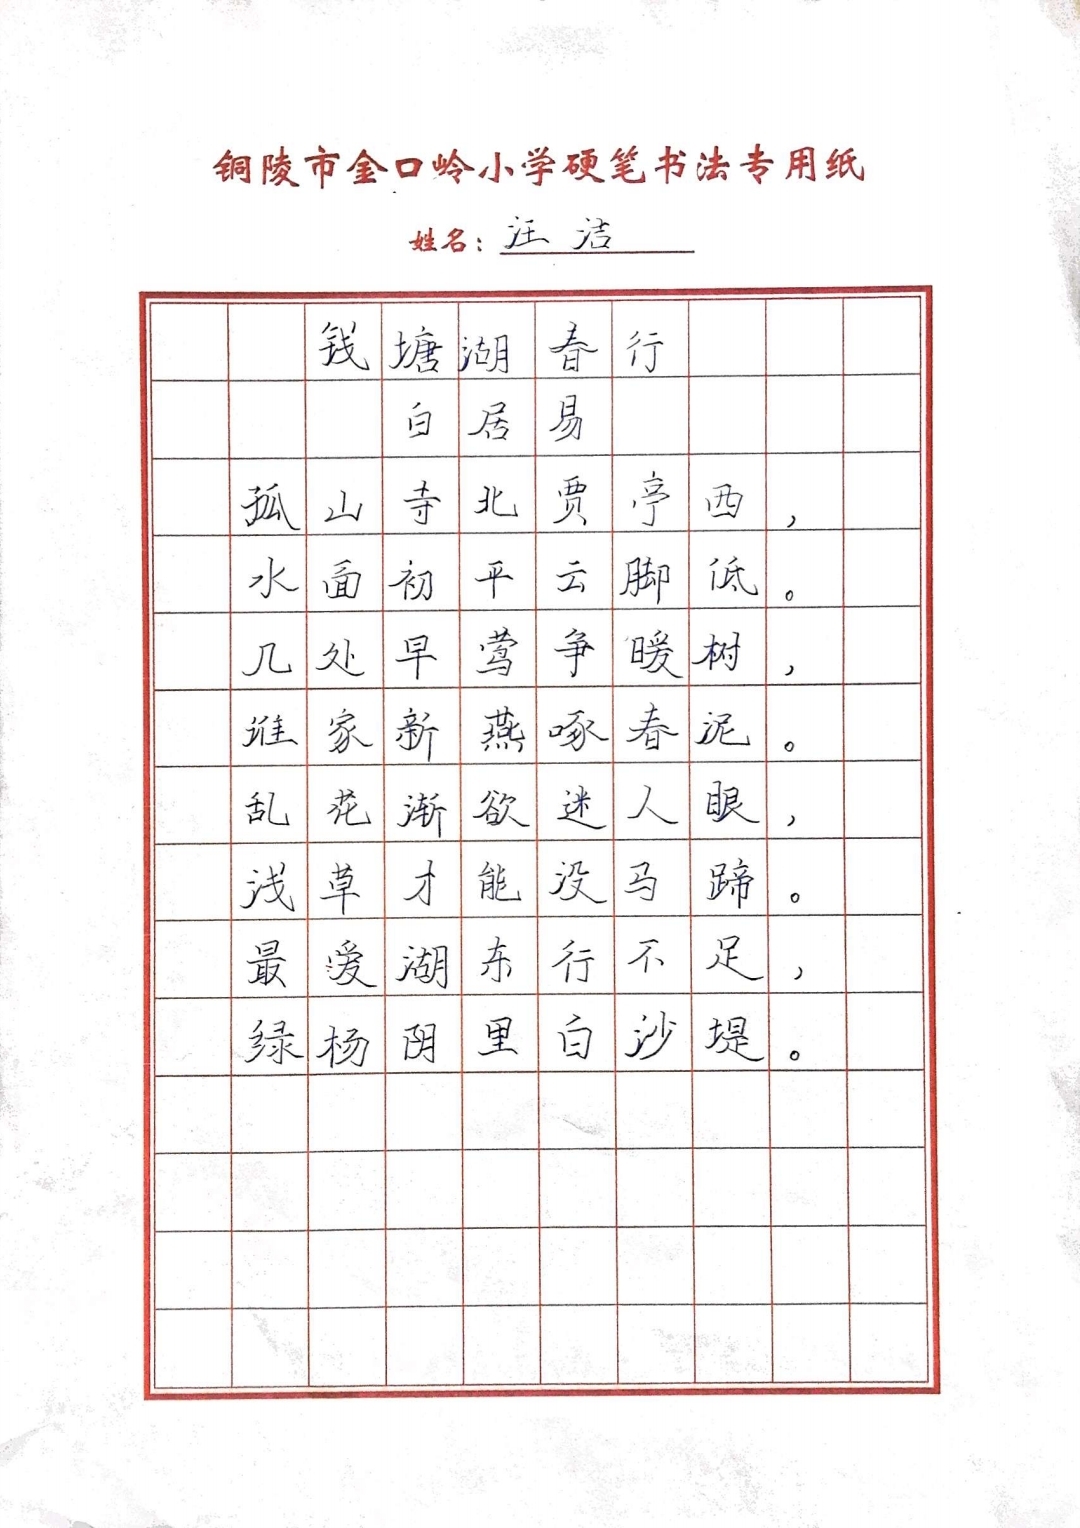 铜陵市金口岭小学硬笔书法专用纸
姓名：汪洁
钱塘湖春行
白居易
孤山寺北贾亭西，
水面初平云脚低。
几处早莺争暖树，
谁家新燕啄春泥。
乱花渐欲迷人眼，
浅草才能没马蹄。
最爱湖东行不足，
绿杨阴里白沙堤。